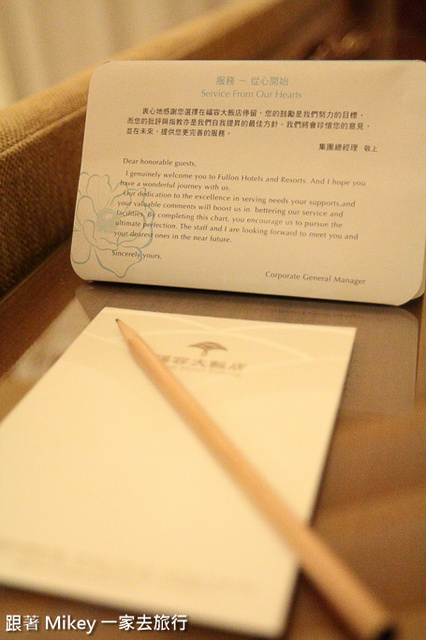 服務 － 從心開始
Service From Our Hearts
衷心地感謝您選擇在福容大飯店停留，您的鼓勵是我們努力的目標，
而您的批評與指教亦是我們自我提昇的最佳方針。我們將會珍惜您的意見，
並在未來，提供您更完善的服務。
集團總經理 敬上
Dear honorable guests,
I genuinely welcome you to Fullon Hotels and Resorts. And I hope you
have a wonderful journey with us.
Our dedication to the excellence in serving needs your supports,and
your valuable comments will boost us in bettering our service and
facilities. By completing this chart, you encourage us to pursue the
ultimate perfection. The staff and I are looking forward to meet you and
your dearest ones in the near future.
Sincerely yours,
Corporate General Manager
福容大飯店
跟著 Mikey 一家去旅行